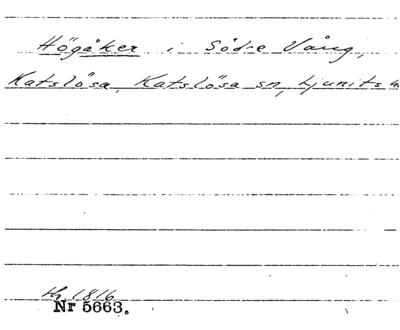 Högåker i Södre Vång,
Katslösa, Katslösa sn, Ljunits
1816
Nr 5663.